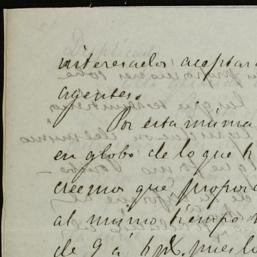 interesados aceptara
agentes.
Por esta misma
en globo de lo que h
creemos que, propor
al mismo tiempo
de 9 á